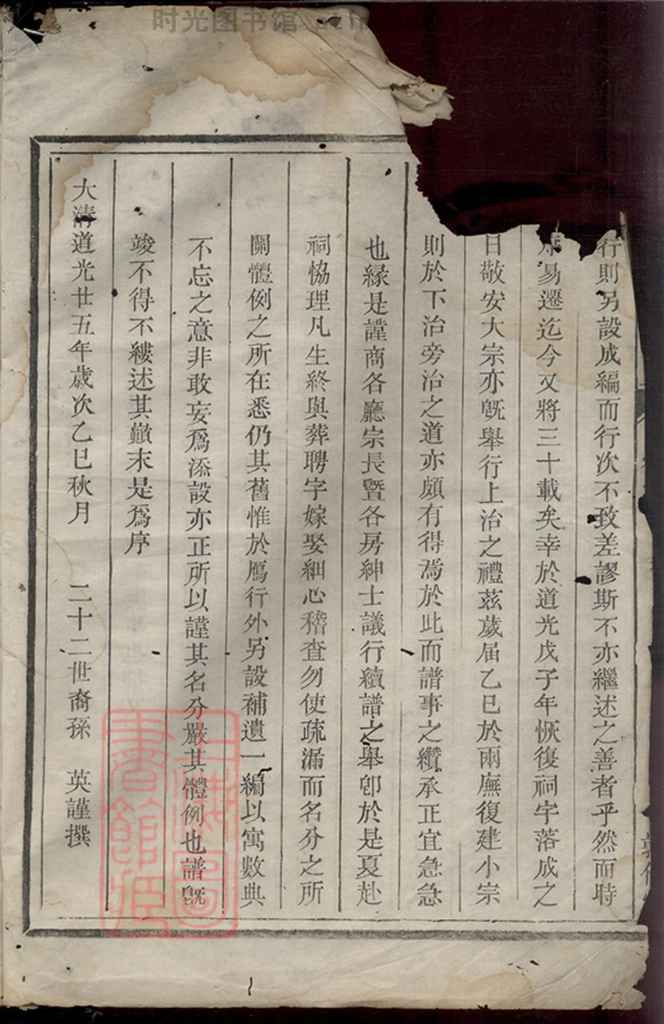 行則另設成編而行次不致差謬斯不亦繼述之善者乎然而時
易遷迄今又將三十載矣幸於道光戊子年恢復祠宇落成之
日敬安大宗亦旣舉行上治之禮茲歲屆乙巳於兩廡復建小宗
則於下治旁治之道亦頗有得焉於此而譜事之纘承正宜急急
也緣是謹商各廳宗長暨各房紳士議行續譜之舉卽於是夏赴
祠恊理凡生終與葬聘字嫁娶細心稽查勿使疏漏而名分之所
關體例之所在悉仍其舊惟於鴈行外另設補遺一編以寓數典
不忘之意非敢妄爲添設亦正所以謹其名分嚴其體例也譜旣
竣不得不縷述其巔末是爲序
大清道光廿五年歲次乙巳秋月 二十二世裔孫 英謹撰
上海圖
書館藏
时光图书馆